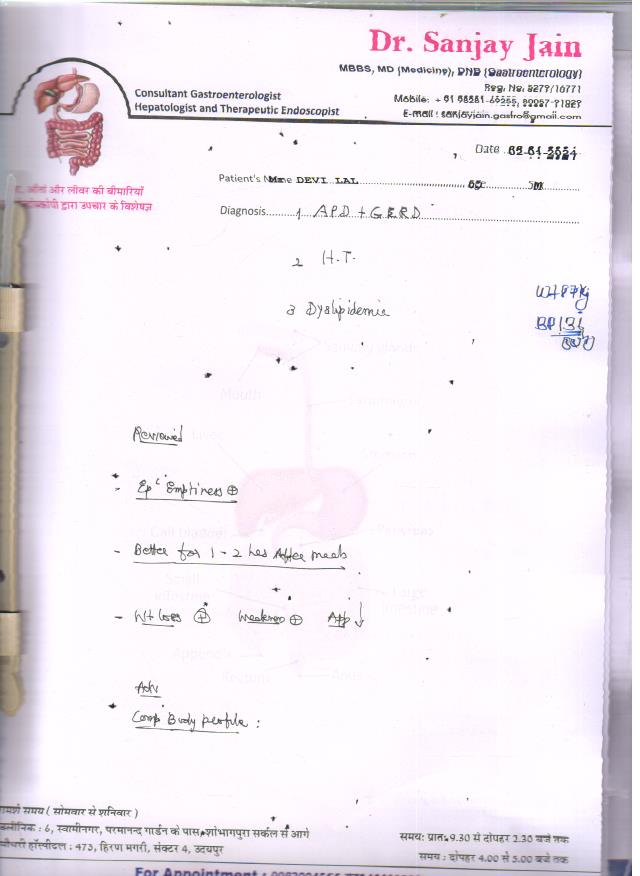 Dr. Sanjay Jain
MBBS, MD (Medicine), DNB (Gastroenterology)
Reg. No. 8277/16771
Consultant Gastroenterologist
Hepatologist and Therapeutic Endoscopist
Mobile: +91
E-mail : sanjayjain.gastro@gmail.com
Date
आंतों और लीवर की बीमारियाँ
द्वारा उपचार के विशेषज्ञ
Patient's Name DEVI LAL
Diagnosis 1 APD + GERD
2 H.T.
3 Dyslipidemia
BP 131
Salivary glands
Mouth
Reviewed
Stomach
- Epi Emptiness ⊕
Gall bladder Pancreas
- Better for 1-2 hrs After meals
Small Large
intestine intestine
- Wt loss ⊕ Weakness ⊕ App ↓
Appendix
Rectum Anus
Adv
Comp Body profile :
समय ( सोमवार से शनिवार )
क्लीनिक : 6, स्वामीनगर, परमानन्द गार्डन के पास, शोभागपुरा सर्कल से आगे
चौधरी हॉस्पीटल : 473, हिरण मगरी, सेक्टर 4, उदयपुर
समय: प्रातः 9.30 से दोपहर 2.30 बजे तक
समय : दोपहर 4.00 से 5.00 बजे तक
For Appointment :